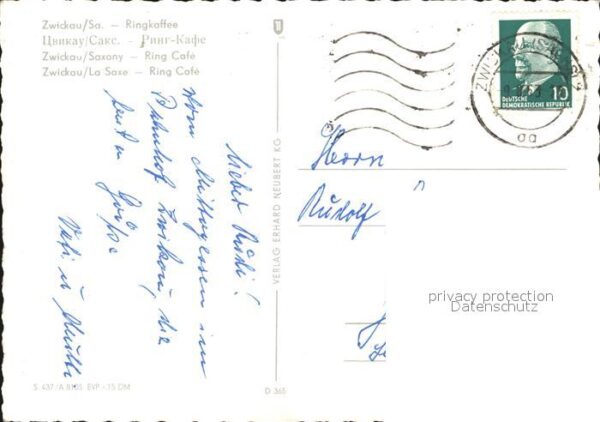 Zwickau/Sa. — Ringkaffee
Цвикау/Сакс. - Ринг-Кафе
Zwickau/Saxony — Ring Café
Zwickau/La Saxe — Ring Café
Lieber Rudi!
Vom Mittagessen im
Bahnhof Zwickau, die
besten Grüße
Vati u. Mutti
S 437/A 8105 EVP -.15 DM
VERLAG ERHARD NEUBERT KG
D 365
10
DEUTSCHE
DEMOKRATISCHE REPUBLIK
Herrn
Rudolf
privacy protection
Datenschutz